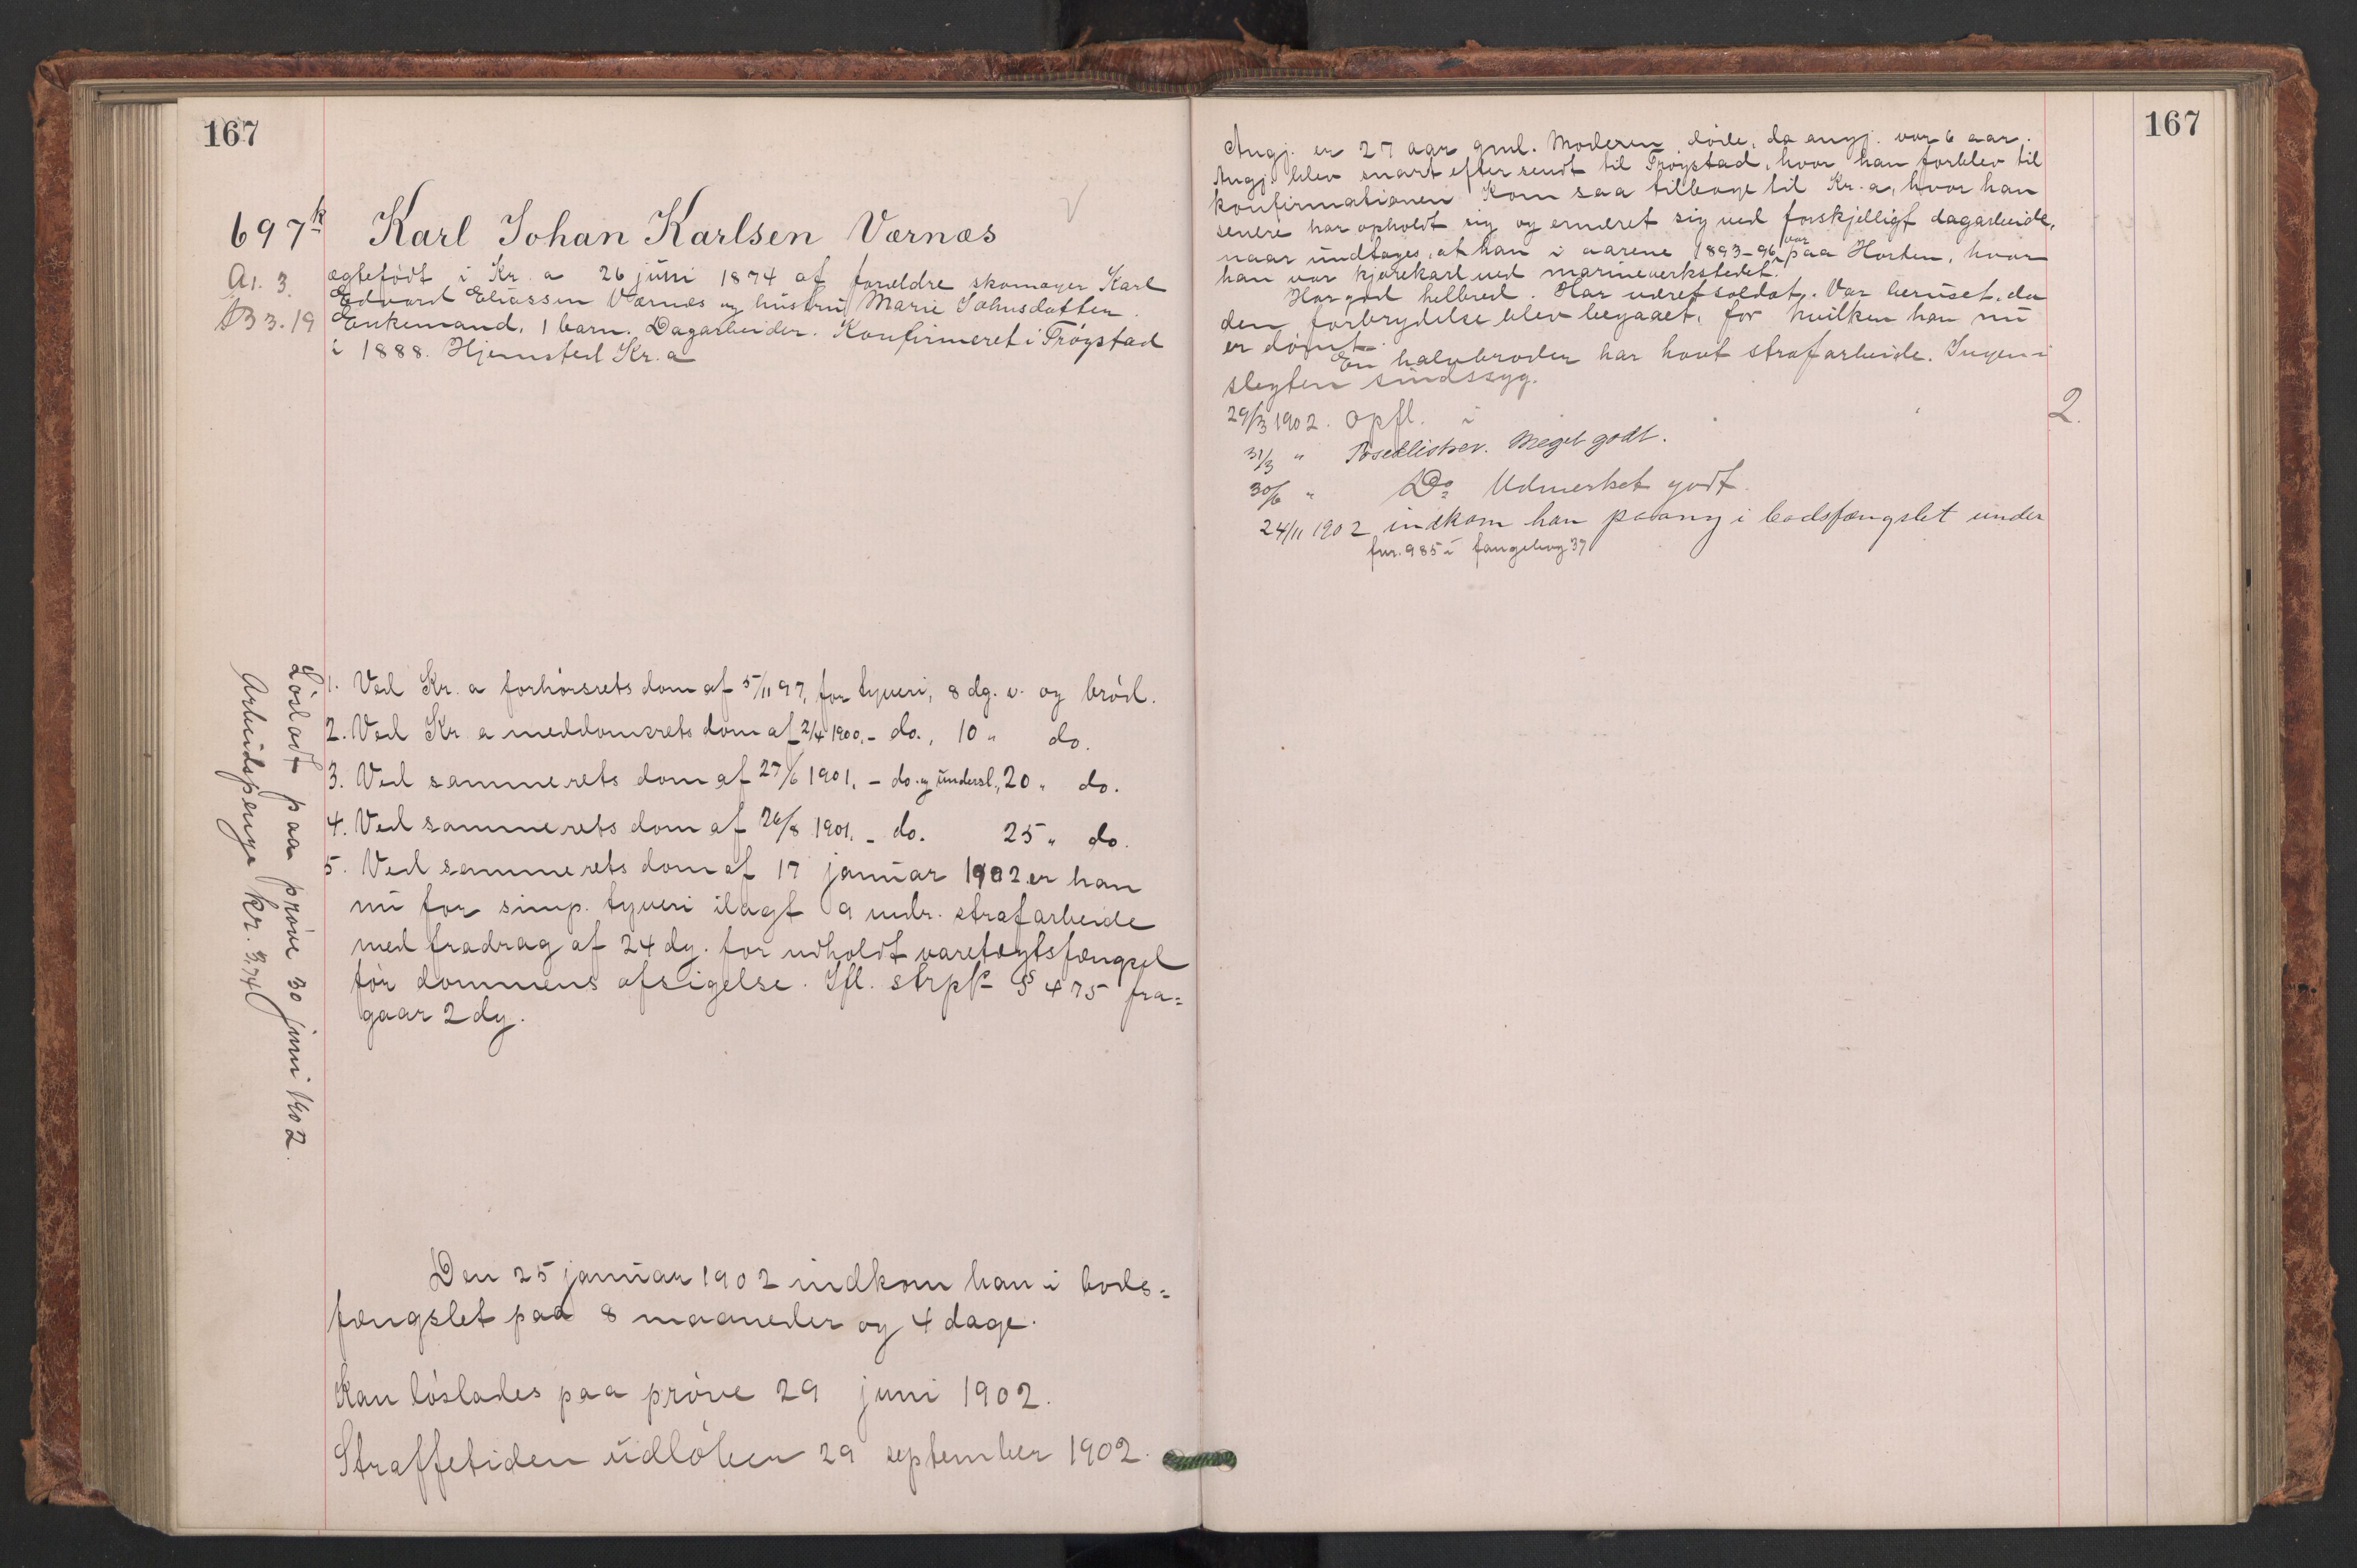 167
697k
Karl Johan Karlsen Værnæs
A1. 3.
B3. 19
ægtefødt i Kr.a 26 juni 1874 af forældre skomager Karl
Edvard Eliassen Værnæs og hustru Marie Johnsdatter.
Enkemand, 1 barn. Dagarbeider. Konfirmeret i Trøgstad
i 1888. Hjemsted Kr.a
1. Ved Kr.a forhørsrets dom af 5/11 97, for tyveri, 8 dg. v. og brød.
2. Ved Kr.a meddomsrets dom af 2/4 1900, - do., 10 " do.
3. Ved samme rets dom af 27/6 1901, - do. og undersl., 20 " do.
4. Ved samme rets dom af 26/8 1901, - do. 25 " do.
5. Ved samme rets dom af 17 januar 1902 er han
nu for simp. tyveri ilagt 9 mdr. strafarbeide
med fradrag af 24 dg. for udholdt varetægtsfængsel
før dommens afsigelse. Ifl. strpl § 475 fra=
gaar 2 dg.
Løsladt paa prøve 30 juni 1902.
Arbeidspenge kr. 3,74
Den 25 januar 1902 indkom han i bods=
fængslet paa 8 maaneder og 4 dage.
Kan løslades paa prøve 29 juni 1902.
Straffetiden udløber 29 september 1902.
167
Angj. er 27 aar gml. Moderen døde, da angj. var 6 aar.
Angj. blev snart efter sendt til Trøgstad, hvor han forblev til
konfirmationen. Kom saa tilbage til Kr.a, hvor han
senere har opholdt sig og ernæret sig ved forskjelligt dagarbeide,
naar undtages, at han i aarene 1893-96 var paa Horten, hvor
han var kjørekarl ved marineverkstedet.
Har god helbred. Har været soldat. Var beruset, da
den forbrydelse blev begaaet, for hvilken han nu
er dømt.
En halvbroder har havt strafarbeide. Ingen i
slegten sindssyg.
29/3 1902. Opfl. i
2.
31/3 " Meget godt.
30/6 " Do Udmerket godt.
24/11 1902 indkom han paany i bodsfængslet under
fnr. 985 i fangebog 37